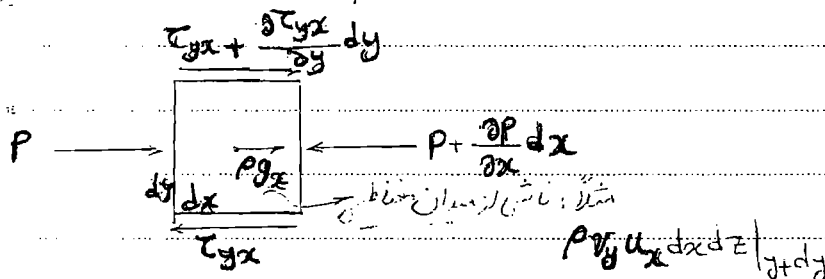 τyx + ∂τyx/∂y dy
P
ρgx
P + ∂P/∂x dx
dy dx
مثلاً: ناشی از میدان مغناطیسی
τyx
ρVy ux dx dz|y+dy